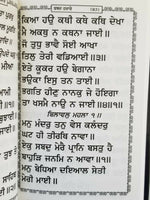 ਕਿਆ ਹਉ ਕਥੀ ਕਥੇ ਕਥਿ ਦੇਖਾ
ਮੈ ਅਕਥੁ ਨ ਕਥਨਾ ਜਾਈ ॥
ਜੋ ਤੁਧੁ ਭਾਵੈ ਸੋਈ ਆਖਾ
ਤਿਲੁ ਤੇਰੀ ਵਡਿਆਈ ॥੩॥
ਏਤੇ ਕੂਕਰ ਹਉ ਬੇਗਾਨਾ
ਭਉਕਾ ਇਸੁ ਤਨ ਤਾਈ ॥
ਭਗਤਿ ਹੀਣੁ ਨਾਨਕੁ ਜੇ ਹੋਇਗਾ
ਤਾ ਖਸਮੈ ਨਾਉ ਨ ਜਾਈ ॥੪॥੧॥
ਬਿਲਾਵਲੁ ਮਹਲਾ ੧ ॥
ਮਨੁ ਮੰਦਰੁ ਤਨੁ ਵੇਸ ਕਲੰਦਰੁ
ਘਟ ਹੀ ਤੀਰਥਿ ਨਾਵਾ ॥
ਏਕੁ ਸਬਦੁ ਮੇਰੈ ਪ੍ਰਾਨਿ ਬਸਤੁ ਹੈ
ਬਾਹੁੜਿ ਜਨਮਿ ਨ ਆਵਾ ॥੧॥
ਮਨੁ ਬੇਧਿਆ ਦਇਆਲ ਸੇਤੀ
ਮੇਰੀ ਮਾਈ ॥